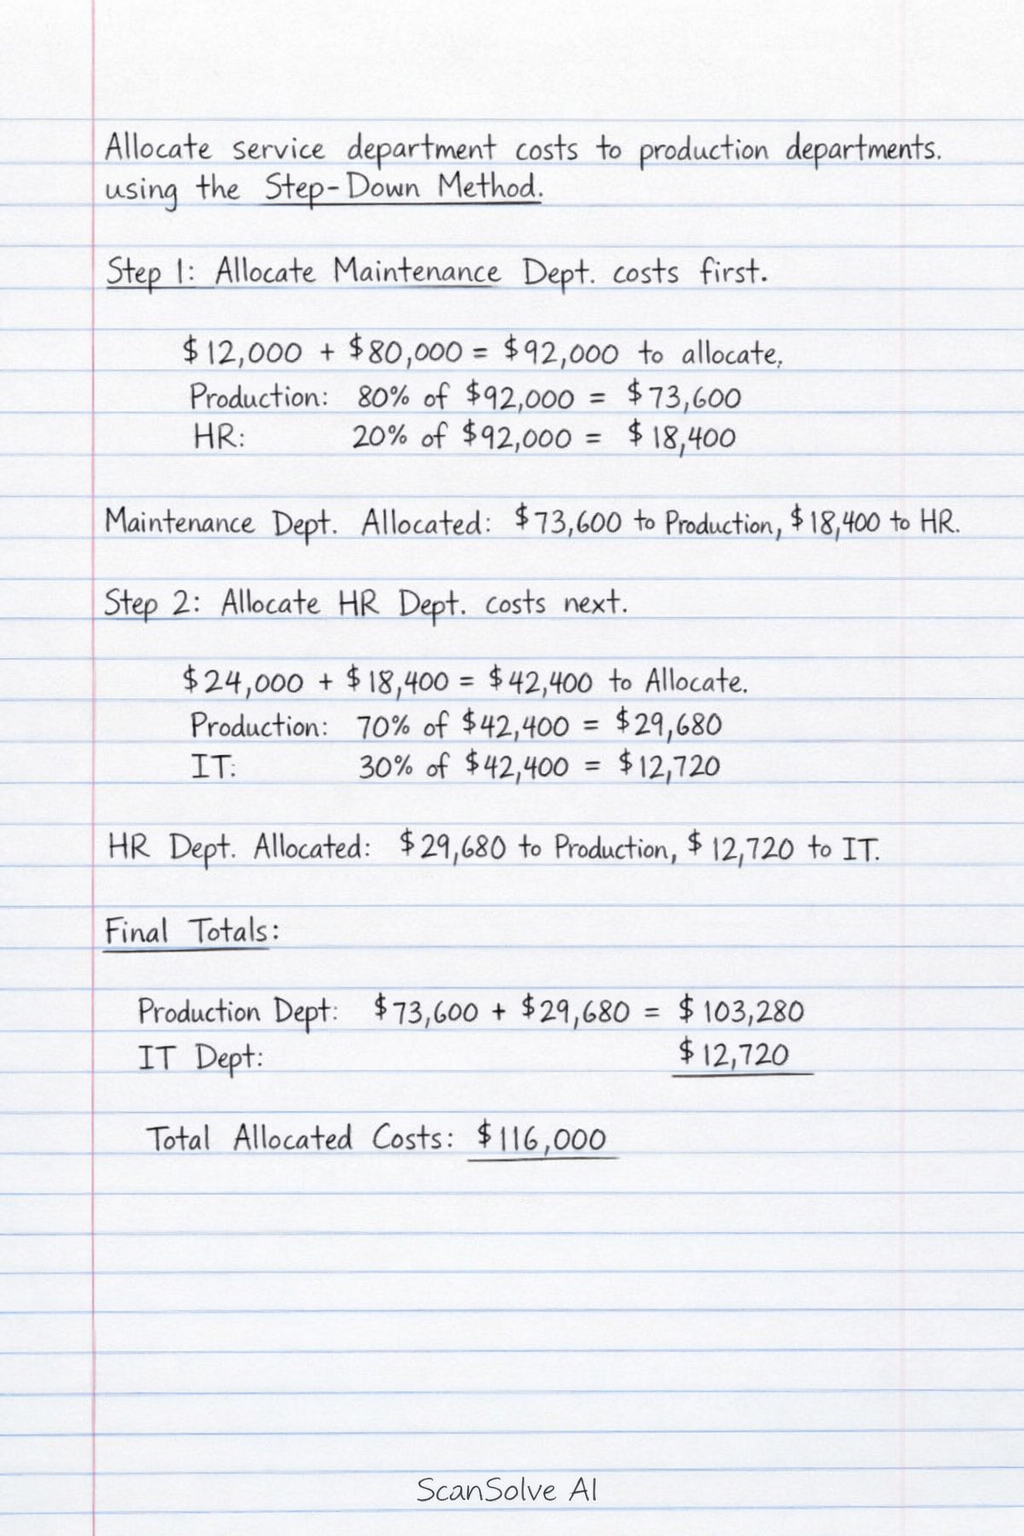 Allocate service department costs to production departments.
using the Step-Down Method.
Step 1: Allocate Maintenance Dept. costs first.
$12,000 + $80,000 = $92,000 to allocate,
Production: 80% of $92,000 = $73,600
HR: 20% of $92,000 = $18,400
Maintenance Dept. Allocated: $73,600 to Production, $18,400 to HR.
Step 2: Allocate HR Dept. costs next.
$24,000 + $18,400 = $42,400 to Allocate.
Production: 70% of $42,400 = $29,680
IT: 30% of $42,400 = $12,720
HR Dept. Allocated: $29,680 to Production, $12,720 to IT.
Final Totals:
Production Dept: $73,600 + $29,680 = $103,280
IT Dept: $12,720
Total Allocated Costs: $116,000
ScanSolve AI